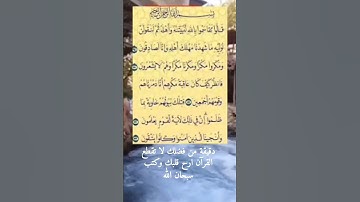 بسم الله الرحمن الرحيم
قالوا تقاسموا بالله لنبيتنه وأهله ثم لنقولن
لوليه ما شهدنا مهلك أهله وإنا لصادقون
ومكروا مكرا ومكرنا مكرا وهم لا يشعرون
فانظر كيف كان عاقبة مكرهم أنا دمرناهم
وقومهم أجمعين فتلك بيوتهم خاوية بما
ظلموا إن في ذلك لآية لقوم يعلمون
وأنجينا الذين آمنوا وكانوا يتقون
دقيقة من فضلك لا تقطع
القرآن ارح قلبك وكتب
سبحان الله